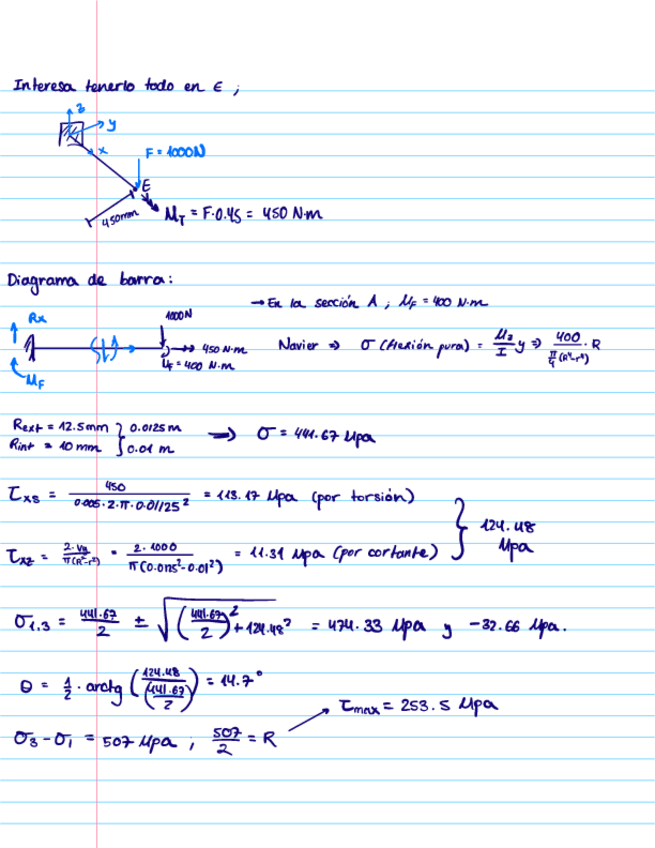 Interesa tenerlo todo en E ;
z
y
x
F = 1000N
E
450mm
M_T = F·0.45 = 450 N·m
Diagrama de barra:
→ En la sección A ; M_F = 400 N·m
Rx
1000N
450 N·m
M_F = 400 N·m
M_F
Navier ⇒ σ (flexión pura) = M_z/I y ⇒ 400/(π/4 (R⁴-r⁴)) · R
Rext = 12.5mm } 0.0125 m
Rint = 10 mm } 0.01 m
⇒ σ = 441.67 Mpa
τ_xs = 450/(0.005·2·π·0.01125²) = 113.17 Mpa (por torsión)
τ_xz = 2·V_y/(π(R²-r²)) = 2·1000/(π(0.0125²-0.01²)) = 11.31 Mpa (por cortante)
} 124.48 Mpa
σ_1.3 = 441.67/2 ± √((441.67/2)² + 124.48²) = 474.33 Mpa y -32.66 Mpa.
θ = 1/2 · arctg (124.48/(441.67/2)) = 14.7°
τ_max = 253.5 Mpa
σ_3 - σ_1 = 507 Mpa ; 507/2 = R